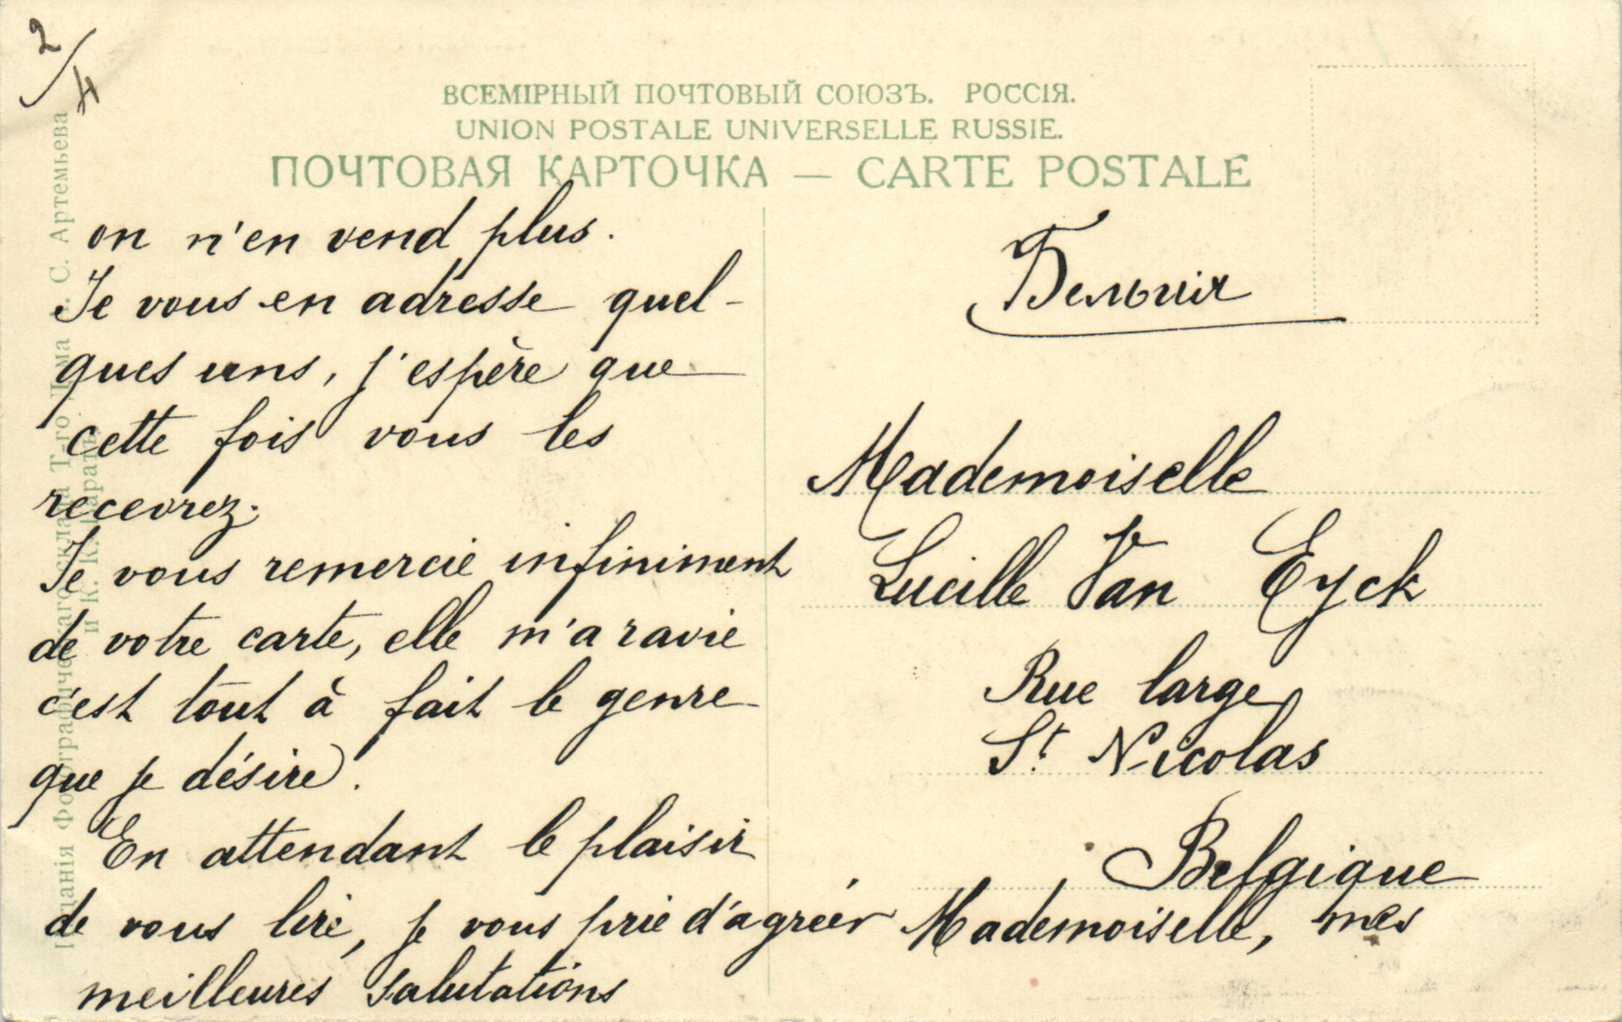 2/4
ВСЕМІРНЫЙ ПОЧТОВЫЙ СОЮЗЪ. РОССІЯ.
UNION POSTALE UNIVERSELLE RUSSIE.
ПОЧТОВАЯ КАРТОЧКА — CARTE POSTALE
on n'en vend plus.
Je vous en adresse quel-
ques uns, j'espère que
cette fois vous les
recevrez.
Je vous remercie infiniment
de votre carte, elle m'a ravie
c'est tout à fait le genre
que je désire.
En attendant le plaisir
de vous lire, je vous prie d'agréer Mademoiselle, mes
meilleures salutations
Бельгія
Mademoiselle
Lucille Van Eyck
Rue large
St. Nicolas
Belgique
Изданія Фотографическаго склада Т-го Дма С. Артемьева
и К. Карать